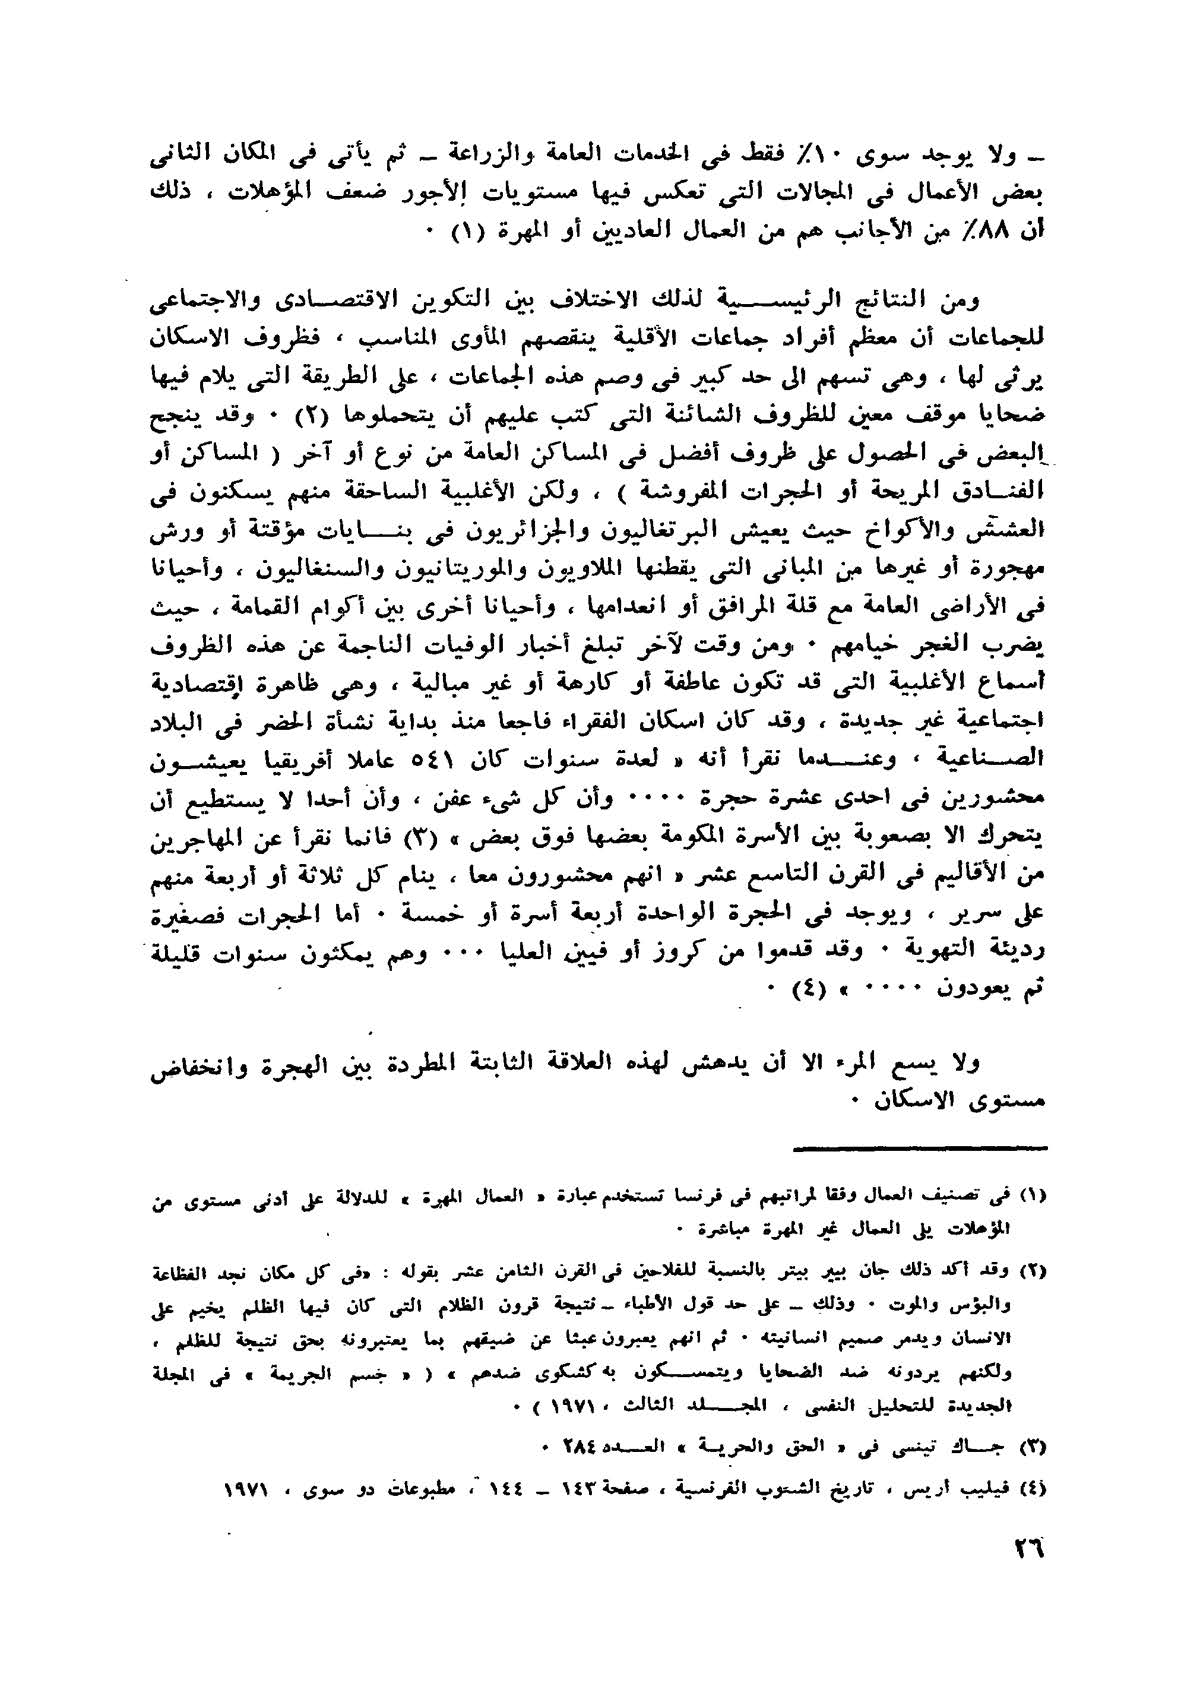 ـ ولا يوجد سوى ١٠٪ فقط فى الخدمات العامة والزراعة ـ ثم يأتى فى المكان الثانى
بعض الأعمال فى المجالات التى تعكس فيها مستويات الأجور ضعف المؤهلات ، ذلك
أن ٨٨٪ من الأجانب هم من العمال العاديين أو المهرة (١) ٠
ومن النتائج الرئيسـية لذلك الاختلاف بين التكوين الاقتصـادى والاجتماعى
للجماعات أن معظم أفراد جماعات الأقلية ينقصهم المأوى المناسب ، فظروف الاسكان
يرثى لها ، وهى تسهم الى حد كبير فى وصم هذه الجماعات ، على الطريقة التى يلام فيها
ضحايا موقف معين للظروف الشائنة التى كتب عليهم أن يتحملوها (٢) ٠ وقد ينجح
البعض فى الحصول على ظروف أفضل فى المساكن العامة من نوع أو آخر ( المساكن أو
الفنـادق المريحة أو الحجرات المفروشة ) ، ولكن الأغلبية الساحقة منهم يسكنون فى
العشش والأكواخ حيث يعيش البرتغاليون والجزائريون فى بنـايات مؤقتة أو ورش
مهجورة أو غيرها من المبانى التى يقطنها الملاويون والموريتانيون والسنغاليون ، وأحيانا
فى الأراضى العامة مع قلة المرافق أو انعدامها ، وأحيانا أخرى بين أكوام القمامة ، حيث
يضرب الغجر خيامهم ٠ ومن وقت لآخر تبلغ أخبار الوفيات الناجمة عن هذه الظروف
أسماع الأغلبية التى قد تكون عاطفة أو كارهة أو غير مبالية ، وهى ظاهرة اقتصادية
اجتماعية غير جديدة ، وقد كان اسكان الفقراء فاجعا منذ بداية نشأة الحضر فى البلاد
الصـناعية ، وعنـدما نقرأ أنه « لعدة سنوات كان ٥٤١ عاملا أفريقيا يعيشـون
محشورين فى احدى عشرة حجرة ٠٠٠٠ وأن كل شىء عفن ، وأن أحدا لا يستطيع أن
يتحرك الا بصعوبة بين الأسرة المكومة بعضها فوق بعض » (٣) فانما نقرأ عن المهاجرين
من الأقاليم فى القرن التاسع عشر « انهم محشورون معا ، ينام كل ثلاثة أو أربعة منهم
على سرير ، ويوجد فى الحجرة الواحدة أربعة أسرة أو خمسة ٠ أما الحجرات فصغيرة
رديئة التهوية ٠ وقد قدموا من كروز أو فيين العليا ٠٠٠ وهم يمكثون سنوات قليلة
ثم يعودون ٠٠٠٠ » (٤) ٠
ولا يسع المرء الا أن يدهش لهذه العلاقة الثابتة المطردة بين الهجرة وانخفاض
مستوى الاسكان ٠
(١) فى تصنيف العمال وفقا لمراتبهم فى فرنسا تستخدم عبارة « العمال المهرة » للدلالة على أدنى مستوى من
المؤهلات يلى العمال غير المهرة مباشرة ٠
(٢) وقد أكد ذلك جان بيير بيتر بالنسبة للفلاحين فى القرن الثامن عشر بقوله : «فى كل مكان نجد الفظاعة
والبؤس والموت ٠ وذلك ـ على حد قول الأطباء ـ نتيجة قرون الظلام التى كان فيها الظلم يخيم على
الانسان ويدمر صميم انسانيته ٠ ثم انهم يعبرون عبثا عن ضيقهم بما يعتبرونه بحق نتيجة للظلم ،
ولكنهم يردونه ضد الضحايا ويتمسـكون به كشكوى ضدهم » ( « جسم الجريمة » فى المجلة
الجديدة للتحليل النفسى ، المجـلد الثالث ، ١٩٧١ ) ٠
(٣) جـاك تينسى فى « الحق والحريـة » العـدد ٢٨٤ ٠
(٤) فيليب أريس ، تاريخ الشعوب الفرنسية ، صفحة ١٤٣ ـ ١٤٤ ، مطبوعات دو سوى ، ١٩٧١
٢٦